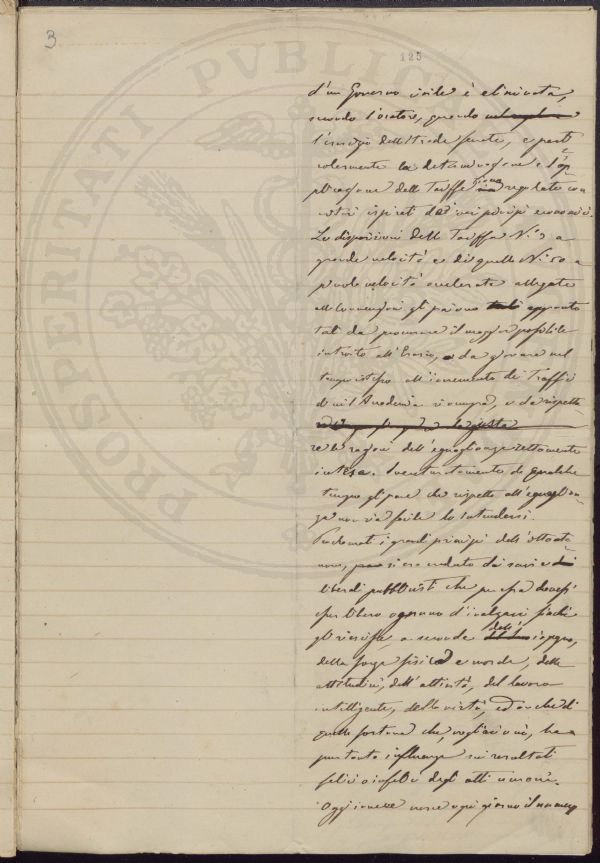 3
125
PROSPERITATI PVBLICAE
d'un Governo civile è eliminata,
secondo l'oratore, quando
l'esercizio delle strade ferrate, e parti
colarmente la determinazione e l'ap
plicazione delle Tariffe siano regolate con
criteri ispirati dai veri principi economici.
Le disposizioni delle Tariffe N.° a
grande velocità e di quelle N.° 50 a
piccola velocità accelerata allegate
alle Convenzioni gli paiono appunto
tali da procurare il maggior possibile
introito all'Erario, e da giovare nel
tempo istesso all'incremento dei Traffici
di cui l'Accademia si occupa, e da rispetta
re le ragioni dell'eguaglianza rettamente
intesa. Sventuratamente da qualche
tempo gli pare che rispetto all'eguaglian-
za non sia facile lo intendersi.
Proclamati i grandi principi dell'ottanta
nove, si era creduto dai savi e
liberali pubblicisti che per essa dovesse
esser libero ognuno d'innalzarsi
gli riuscisse, a seconda dell'ingegno,
della forza fisica e morale, delle
attitudini, dell'attività, del lavoro
intelligente, della virtù, ed anche di
quella fortuna che, vogliasi o no, ha
pur tanta influenza sui resultati
felici o infelici degli atti umani.
Oggi invece cresce ogni giorno il numero